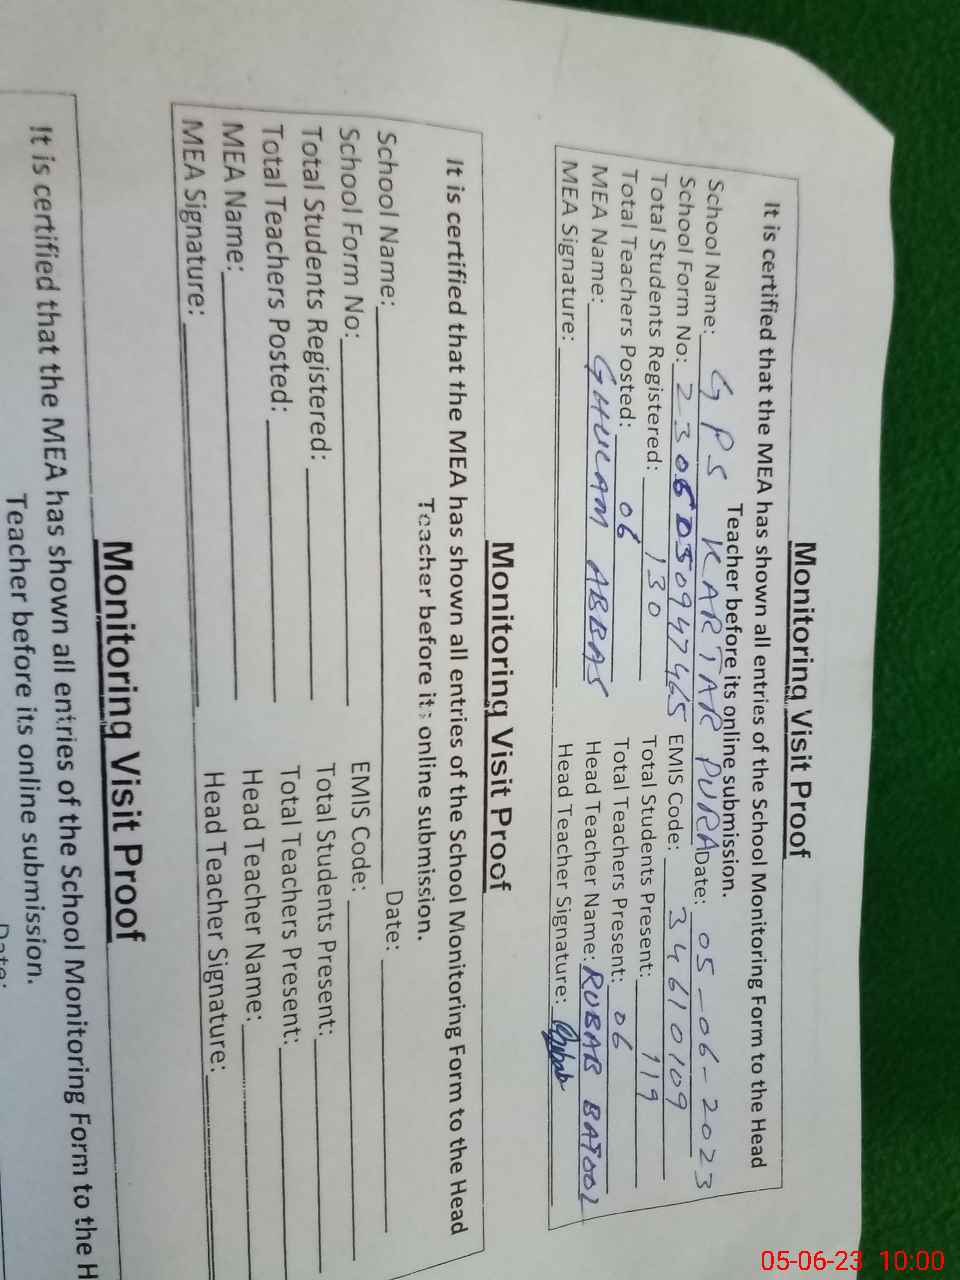 Monitoring Visit Proof
It is certified that the MEA has shown all entries of the School Monitoring Form to the Head
Teacher before its online submission.
School Name: GPS KARTAR PURA Date: 05-06-2023
School Form No: 2306050947465 EMIS Code: 34610109
Total Students Registered: 130 Total Students Present: 119
Total Teachers Posted: 06 Total Teachers Present: 06
MEA Name: GHULAM ABBAS Head Teacher Name: RUBAB BATOOL
MEA Signature: Head Teacher Signature: Rubab
Monitoring Visit Proof
It is certified that the MEA has shown all entries of the School Monitoring Form to the Head
Teacher before its online submission.
School Name: Date:
School Form No: EMIS Code:
Total Students Registered: Total Students Present:
Total Teachers Posted: Total Teachers Present:
MEA Name: Head Teacher Name:
MEA Signature: Head Teacher Signature:
Monitoring Visit Proof
It is certified that the MEA has shown all entries of the School Monitoring Form to the H
Teacher before its online submission.
Date:
05-06-23 10:00